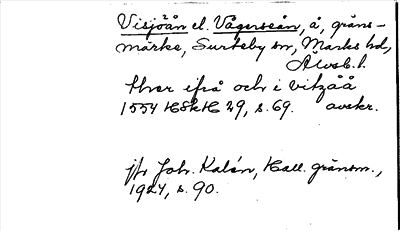 Visjöån el. Vågerseån, å, gräns-
märke, Surteby sn, Marks hd,
Älvsb. l.
Hver ifrå och i vitzåå
1554 HSkH 29, s. 69. avskr.
jfr Joh. Kalén, Hall. gränsm.,
1924, s. 90.